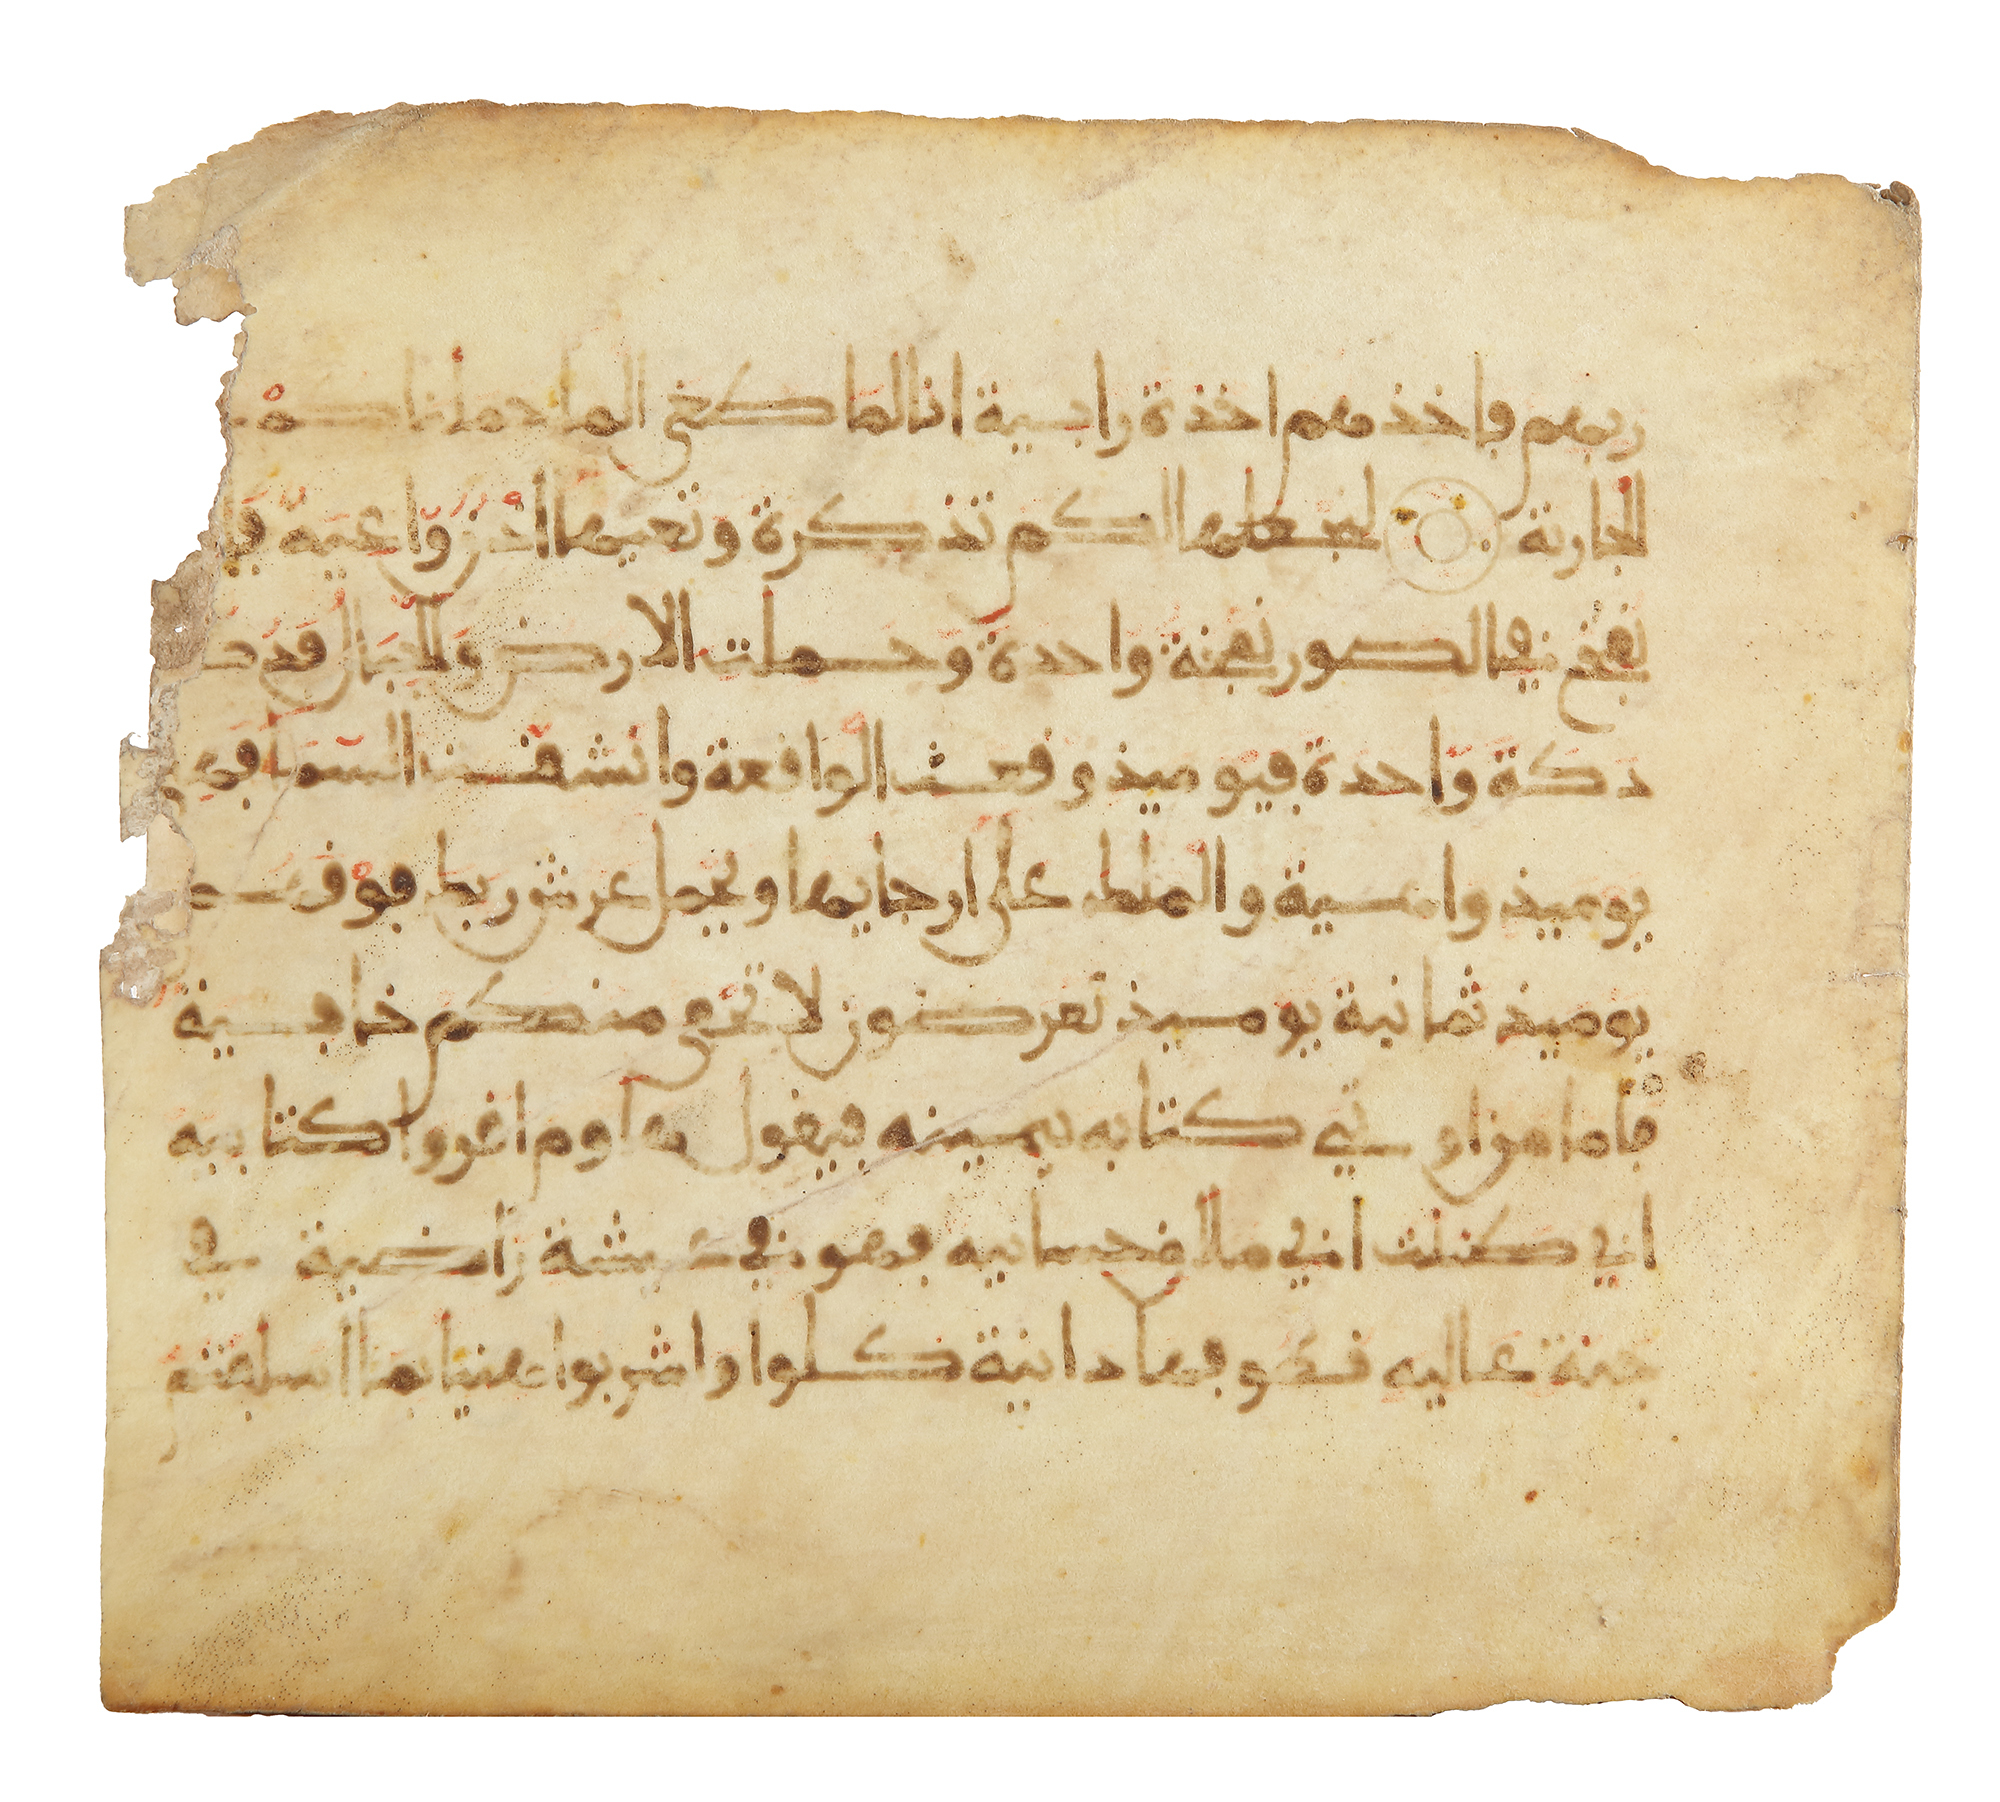 ربهم فاخذهم اخذة رابية انا لما طغى الما حملناكم
الجارية لنجعلها لكم تذكرة وتعيها اذن واعية فاذا
نفخ في الصور نفخة واحدة وحملت الارض والجبال فدكتا
دكة واحدة فيوميذ وقعت الواقعة وانشقت السما فهي
يوميذ واهية والملك على ارجايها ويحمل عرش ربك فوقهم
يوميذ ثمانية يوميذ تعرضون لا تخفى منكم خافية
فاما من اوتي كتابه بيمينه فيقول هاوم اقروا كتابيه
اني ظننت اني ملاق حسابيه فهو في عيشة راضية في
جنة عالية قطوفها دانية كلوا واشربوا هنيا بما اسلفتم